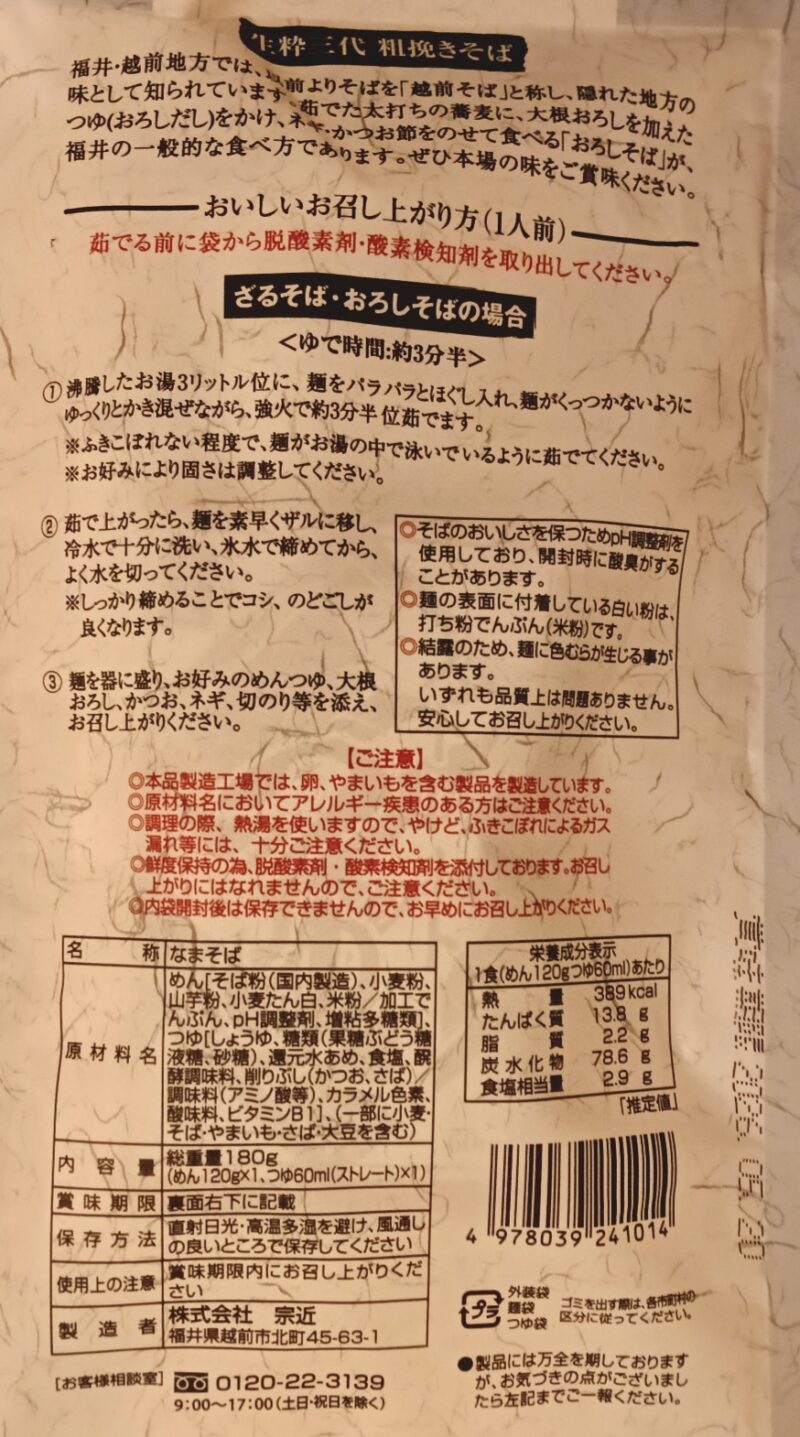 生粋三代 粗挽きそば
福井・越前地方では、前よりそばを「越前そば」と称し、隠れた地方の
味として知られています。茹でた太打ちの蕎麦に、大根おろしを加えた
つゆ(おろしだし)をかけ、ネギ・かつお節をのせて食べる「おろしそば」が、
福井の一般的な食べ方であります。ぜひ本場の味をご賞味ください。
おいしいお召し上がり方(1人前)
茹でる前に袋から脱酸素剤・酸素検知剤を取り出してください。
ざるそば・おろしそばの場合
<ゆで時間:約3分半>
①沸騰したお湯3リットル位に、麺をバラバラとほぐし入れ、麺がくっつかないように
ゆっくりとかき混ぜながら、強火で約3分半位茹でます。
※ふきこぼれない程度で、麺がお湯の中で泳いでいるように茹でてください。
※お好みにより固さは調整してください。
②茹で上がったら、麺を素早くザルに移し、
冷水で十分に洗い、氷水で締めてから、
よく水を切ってください。
※しっかり締めることでコシ、のどごしが
良くなります。
③麺を器に盛り、お好みのめんつゆ、大根
おろし、かつお、ネギ、切のり等を添え、
お召し上がりください。
◎そばのおいしさを保つためpH調整剤を
使用しており、開封時に酸臭がする
ことがあります。
◎麺の表面に付着している白い粉は、
打ち粉でんぷん(米粉)です。
◎結露のため、麺に色むらが生じる事が
あります。
いずれも品質上は問題ありません。
安心してお召し上がりください。
【ご注意】
◎本品製造工場では、卵、やまいもを含む製品を製造しています。
◎原材料名においてアレルギー疾患のある方はご注意ください。
◎調理の際、熱湯を使いますので、やけど、ふきこぼれによるガス
漏れ等には、十分ご注意ください。
◎鮮度保持の為、脱酸素剤・酸素検知剤を添付しております。お召し
上がりにはなれませんので、ご注意ください。
◎内袋開封後は保存できませんので、お早めにお召し上がりください。
名称 なまそば
原材料名 めん[そば粉(国内製造)、小麦粉、
山芋粉、小麦たん白、米粉/加工で
んぷん、pH調整剤、増粘多糖類]、
つゆ[しょうゆ、糖類(果糖ぶどう糖
液糖、砂糖)、還元水あめ、食塩、醗
酵調味料、削りぶし(かつお、さば)/
調味料(アミノ酸等)、カラメル色素、
酸味料、ビタミンB1]、(一部に小麦・
そば・やまいも・さば・大豆を含む)
内容量 総重量180g
(めん120g×1、つゆ60ml(ストレート)×1)
賞味期限 裏面右下に記載
保存方法 直射日光・高温多湿を避け、風通し
の良いところで保存してください
使用上の注意 賞味期限内にお召し上がりくだ
さい
製造者 株式会社 宗近
福井県越前市北町45-63-1
[お客様相談室] 0120-22-3139
9:00〜17:00(土日・祝日を除く)
栄養成分表示
1食(めん120gつゆ60ml)あたり
熱量 389kcal
たんぱく質 13.8g
脂質 2.2g
炭水化物 78.6g
食塩相当量 2.9g
「推定値」
4 978039 241014
プラ
外装袋
麺袋
つゆ袋
ゴミを出す際は、各市町村の
区分に従ってください。
●製品には万全を期しております
が、お気づきの点がございまし
たら左記までご一報ください。